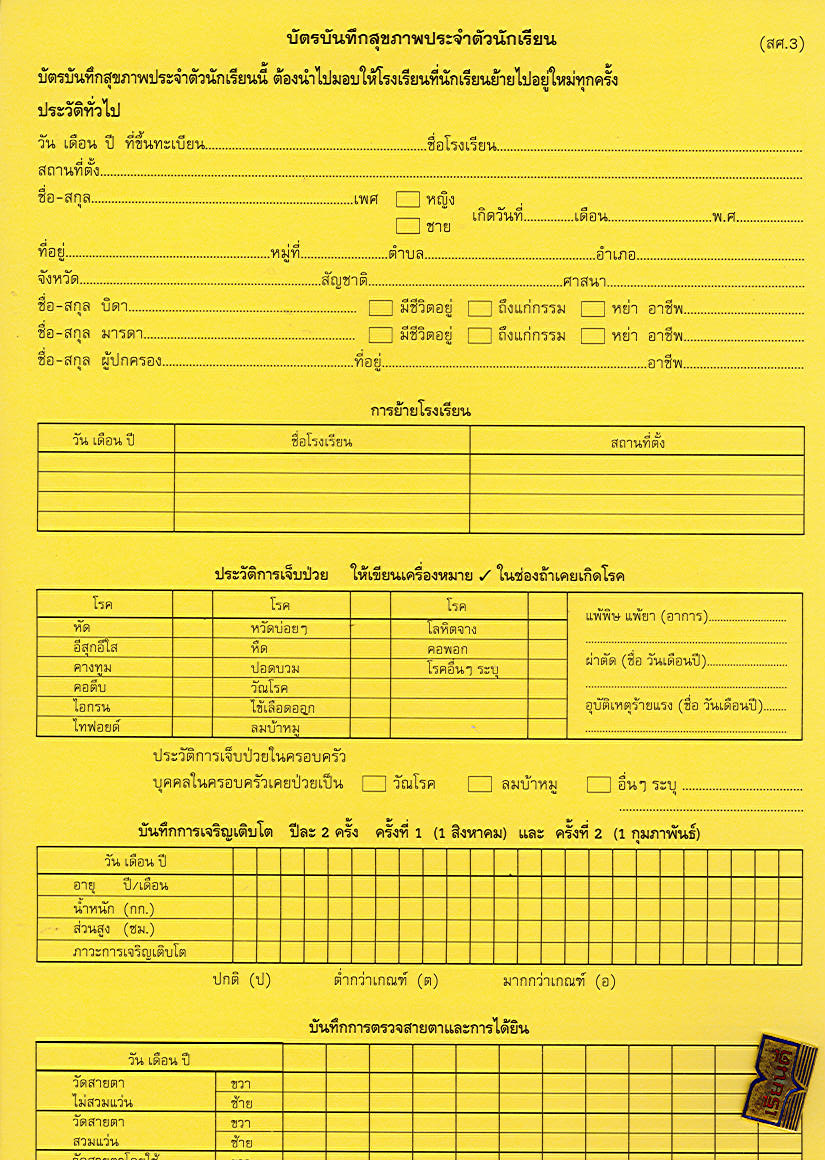 บัตรบันทึกสุขภาพประจำตัวนักเรียน (สศ.3)
บัตรบันทึกสุขภาพประจำตัวนักเรียนนี้ ต้องนำไปมอบให้โรงเรียนที่นักเรียนย้ายไปอยู่ใหม่ทุกครั้ง
ประวัติทั่วไป
วัน เดือน ปี ที่ขึ้นทะเบียน ชื่อโรงเรียน
สถานที่ตั้ง
ชื่อ-สกุล เพศ หญิง
ชาย เกิดวันที่ เดือน พ.ศ.
ที่อยู่ หมู่ที่ ตำบล อำเภอ
จังหวัด สัญชาติ ศาสนา
ชื่อ-สกุล บิดา มีชีวิตอยู่ ถึงแก่กรรม หย่า อาชีพ
ชื่อ-สกุล มารดา มีชีวิตอยู่ ถึงแก่กรรม หย่า อาชีพ
ชื่อ-สกุล ผู้ปกครอง ที่อยู่ อาชีพ
การย้ายโรงเรียน
วัน เดือน ปี ชื่อโรงเรียน สถานที่ตั้ง
ประวัติการเจ็บป่วย ให้เขียนเครื่องหมาย ✓ ในช่องถ้าเคยเกิดโรค
โรค โรค โรค
หัด หวัดบ่อยๆ โลหิตจาง
อีสุกอีใส หืด คอพอก
คางทูม ปอดบวม โรคอื่นๆ ระบุ
คอตีบ วัณโรค
ไอกรน ไข้เลือดออก
ไทฟอยด์ ลมบ้าหมู
แพ้พิษ แพ้ยา (อาการ)
ผ่าตัด (ชื่อ วันเดือนปี)
อุบัติเหตุร้ายแรง (ชื่อ วันเดือนปี)
ประวัติการเจ็บป่วยในครอบครัว
บุคคลในครอบครัวเคยป่วยเป็น วัณโรค ลมบ้าหมู อื่นๆ ระบุ
บันทึกการเจริญเติบโต ปีละ 2 ครั้ง ครั้งที่ 1 (1 สิงหาคม) และ ครั้งที่ 2 (1 กุมภาพันธ์)
วัน เดือน ปี
อายุ ปี/เดือน
น้ำหนัก (กก.)
ส่วนสูง (ซม.)
ภาวะการเจริญเติบโต
ปกติ (ป) ต่ำกว่าเกณฑ์ (ต) มากกว่าเกณฑ์ (อ)
บันทึกการตรวจสายตาและการได้ยิน
วัน เดือน ปี
วัดสายตา ขวา
ไม่สวมแว่น ซ้าย
วัดสายตา ขวา
สวมแว่น ซ้าย